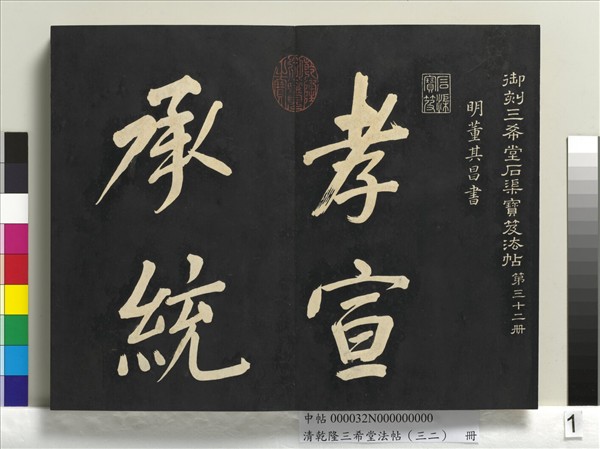 御刻三希堂石渠寶笈法帖 第三十二册
明董其昌書
石渠寶笈
孝宣
承統
中帖 000032N000000000
清乾隆三希堂法帖（三二） 冊
1